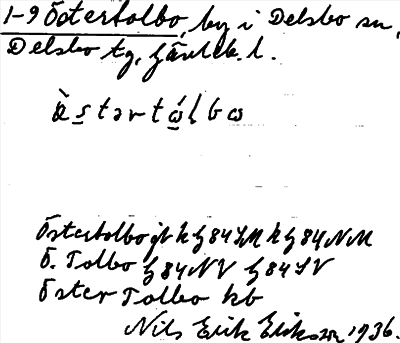 1-9 Östertolbo, by i Delsbo sn,
Delsbo tg, Gävleb. l.
ὰ s t ə r t ό̱ l b ω
Östertolbo gt k G84SM k G84NM
Ö. Tolbo G84NV G84SV
Öster Tolbo kb
Nils Erik Eriksson 1936.